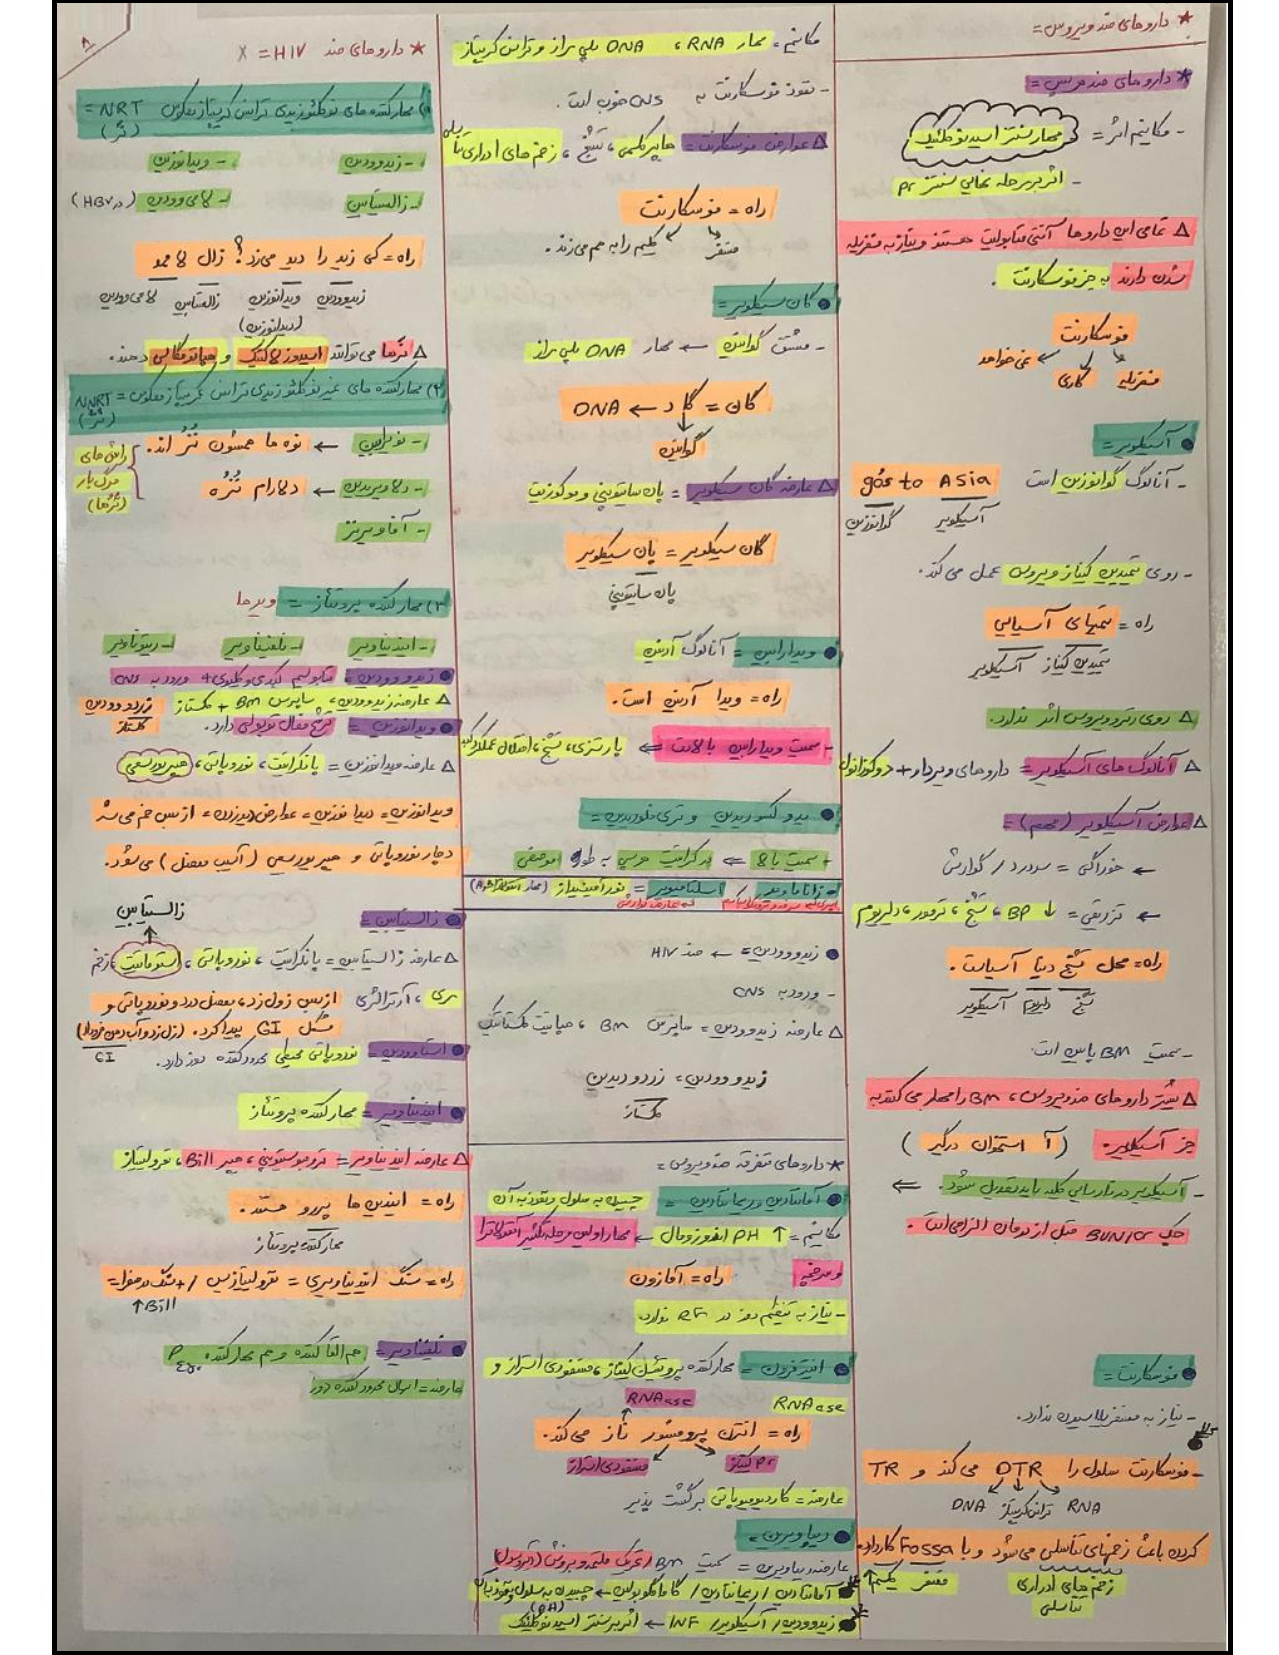 * داروهای ضد ویروس =
* داروهای ضد هرپس =
- مکانیم اثر = مهار سنتز اسید نوکلئیک
- اثر بر مرحله نهایی سنتز Pr
Δ تمامی این داروها آنتی متابولیت هستند و نیاز به فسفریله
شدن دارند به جز فوسکارنت.
فوسکارنت
فسفریله کاری نمی خواهد
● آسیکلویر =
- آنالوگ گوانوزین است goes to ASia
گوانوزین آسیکلویر
- روی تیمیدین کیناز ویروس عمل می کند.
راه = تیمهای آسیایی
تیمیدین کیناز آسیکلویر
Δ روی رتروویروس اثر ندارد.
Δ آنالوگ های آسیکلویر = داروهای ویردار + دوکوزانول
Δ عوارض آسیکلویر (مهم) =
← خوراکی = سردرد / گوارش
← تزریقی = ↓ BP، تشنج، ترمور، دلیریوم
راه = محل تشنج دنیا آسیاست.
تشنج دلیریوم آسیکلویر
- سمیت BM پایین است.
Δ بیشتر داروهای ضدویروس، BM را مهار می کنند به
جز آسیکلویر. (آ استخوان درگیر)
- آسیکلویر در نارسایی کلیه باید تعدیل شود. ⇐
چک BUN/Cr قبل از درمان الزامی است.
● فوسکارنت =
- نیاز به فسفریلاسیون ندارد.
- فوسکارنت سلول را DTR می کند و TR
DNA ترانس کریپتاز RNA
کردن باعث زخمهای تناسلی می شود و با Fossa کار داره
زخم های ادراری تناسلی فسفر کلیم↑
مکانیم = مهار RNA، DNA پلی مراز و ترانس کریپتاز
- نفوذ فوسکارنت به CNS خوب است.
Δ عوارض فوسکارنت = هایپرکلمی، تشنج، زخم های ادراری تناسلی
راه = فوسکارنت
فسفر کلیم را به هم می زند.
● گان سیکلویر =
- مشتق گوانین ← مهار DNA پلی مراز
گان = گا د ← DNA
گوانین
Δ عارضه گان سیکلویر = پان سایتوپنی و موکوزیت
گان سیکلویر = پان سیکلویر
پان سایتوپنی
● ویدارابین = آنالوگ آدنین
راه = ویدا آدنین است.
- سمیت ویدارابین بالاست ⇐ پارستزی، تشنج، اختلال عملکرد کبد
● یدوکسوریدین و تری فلوریدین =
+ سمیت بالا ⇐ در کراتیت هرپسی به طور موضعی
● زاناماویر اسلتامیویر = نورآمینیداز
← عارضه گوارشی
● زیدوودین ← ضد HIV
- ورود به CNS
Δ عارضه زیدوودین = ساپرس BM، میانیت گمستاتیک
زیدوودین = زرد و دیدین
* داروهای متفرقه ضدویروس =
● آمانتادین و ریمانتادین = چسبیدن به سلول و نفوذ به آن
مکانیم = ↑ PH اندوزومال ← مهار اولین مرحله تکثیر آنفلوانزا
و سرخجه راه = آمازون
- نیاز به تنظیم دوز در RF ندارد
● اینترفرون = مهارکننده پروتئین کیناز، فسفودی استراز و
RNAase RNAase
راه = انترن پروفسور ناز می کند.
فسفودی استراز Pr کیناز
عارضه = کاردیومیوپاتی برگشت پذیر
● ریباویرین =
عارضه ریباویرین = سمیت BM / تحریک ملتحمه و برونش (آئروسول)
آمانتادین / ریمانتادین / گاماگلوبولین ← چسبیدن به سلول و نفوذ به آن
زیدوودین / آسیکلویر / INF ← اثر بر سنتز اسید نوکلئیک
۸
* داروهای ضد HIV = X
۱) مهارکننده های نوکلئوزیدی ترانس کریپتاز معکوس NRT =
(نُر)
- زیدوودین - ویدانوزین
- زالسیتابین - لامی وودین (در HBV)
راه = کی زید را دید می زد؟ زال لامبو
زیدوودین ویدانوزین زالسیتابین لامی وودین
(دیدانوزین)
Δ نُرها می توانند اسیدوز لاکتیک و هپاتومگالی دهند.
۲) مهارکننده های غیر نوکلئوزیدی ترانس کریپتاز معکوس = NNRT
- نویراپین ← نوه ما همشون نُنُر اند.
راش های مرگبار (نُنُرها)
- دلاویریدین ← دلارام نُنُره
- افاویرنز
۳) مهارکننده پروتئاز = ویرها
- ایندیناویر - نلفیناویر - ریتوناویر
● زیدوودین = متابولیسم کبدی و کلیوی + ورود به CNS
Δ عارضه زیدوودین = ساپرس BM + گمستاز
● ویدانوزین = ترشح فعال توبولی دارد.
Δ عارضه ویدانوزین = پانکراتیت، نوروپاتی، هیپریوریسمی
ویدانوزین = دیدا نوزین = عوارض دیدزدن = از بس خم می شد
دچار نوروپاتی و هیپریوریسمی (آسیب مفصل) می شود.
زالسیتابین
● زالسیتابین =
Δ عارضه زالسیتابین = پانکراتیت، نوروپاتی، استوماتیت، زخم
مری، آرترالژی از بس زول زد، مفصل درد و نوروپاتی و
مشکل GI پیدا کرد. (زل زد و آب دهن قورت داد)
GI
● استاوودین = نوروپاتی محیطی محدودکننده دوز دارد.
● ایندیناویر = مهارکننده پروتئاز
Δ عارضه ایندیناویر = ترومبوسیتوپنی، هیپر Bill، نفرولیتیاز
راه = ایندین ها پررو هستند.
مهارکننده پروتئاز
راه = سنگ ایندیناویری = نفرولیتیازیس / + سنگ صفرا =
↑Bill
● نلفیناویر = هم القا کننده و هم مهارکننده P450
عارضه = اسهال محدودکننده دوز